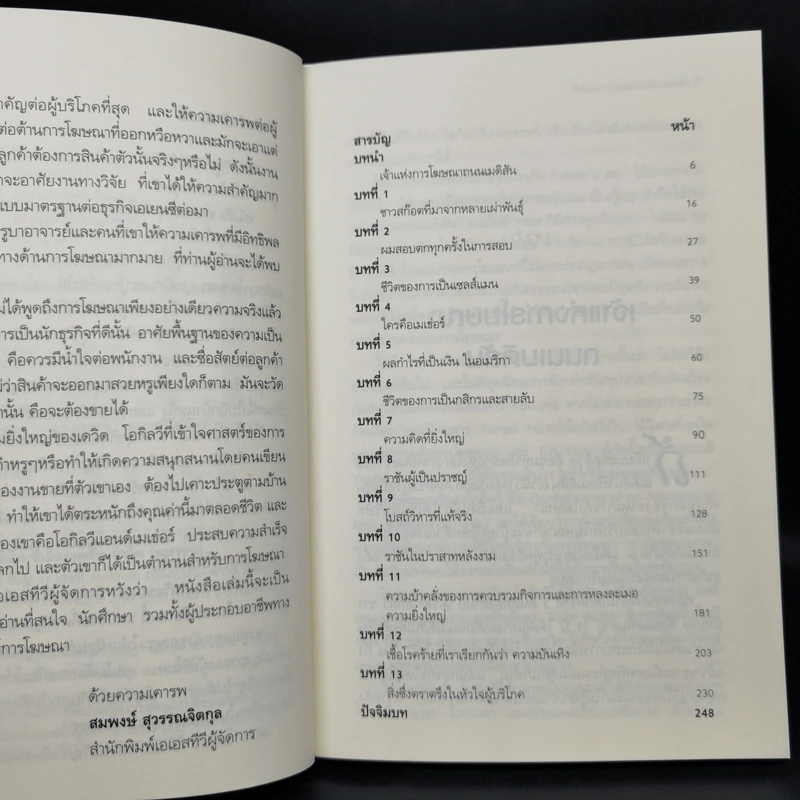 ำคัญต่อผู้บริโภคที่สุด และให้ความเคารพต่อผู้
ต่อต้านการโฆษณาที่ออกหวือหวาและมักจะเอาแต่
ลูกค้าต้องการสินค้าตัวนั้นจริงๆหรือไม่ ดังนั้นงาน
าจะอาศัยงานทางวิจัย ที่เขาได้ให้ความสำคัญมาก
แบบมาตรฐานต่อธุรกิจเอเยนซีต่อมา
รูบาอาจารย์และคนที่เขาให้ความเคารพที่มีอิทธิพล
ทางด้านการโฆษณามากมาย ที่ท่านผู้อ่านจะได้พบ
ม่ได้พูดถึงการโฆษณาเพียงอย่างเดียวความจริงแล้ว
การเป็นนักธุรกิจที่ดีนั้น อาศัยพื้นฐานของความเป็น
คือควรมีน้ำใจต่อพนักงาน และซื่อสัตย์ต่อลูกค้า
ม่ว่าสินค้าจะออกมาสวยหรูเพียงใดก็ตาม มันจะวัด
ท่านั้น คือจะต้องขายได้
มยิ่งใหญ่ของเดวิด โอกิลวีที่เข้าใจศาสตร์ของการ
คำหรูๆหรือทำให้เกิดความสนุกสนานโดยคนเขียน
องงานขายที่ตัวเขาเอง ต้องไปเคาะประตูตามบ้าน
ทำให้เขาได้ตระหนักถึงคุณค่านี้มาตลอดชีวิต และ
องเขาคือโอกิลวีแอนด์เมเธ่อร์ ประสบความสำเร็จ
ลกไป และตัวเขาก็ได้เป็นตำนานสำหรับการโฆษณา
อเอสทีวีผู้จัดการหวังว่า หนังสือเล่มนี้จะเป็น
อ่านที่สนใจ นักศึกษา รวมทั้งผู้ประกอบอาชีพทาง
การโฆษณา
ด้วยความเคารพ
สมพงษ์ สุวรรณจิตกุล
สำนักพิมพ์เอเอสทีวีผู้จัดการ
สารบัญ หน้า
บทนำ
เจ้าแห่งการโฆษณาถนนเมดิสัน 6
บทที่ 1
ชาวสก๊อตที่มาจากหลายเผ่าพันธุ์ 16
บทที่ 2
ผมสอบตกทุกครั้งในการสอบ 27
บทที่ 3
ชีวิตของการเป็นเซลส์แมน 39
บทที่ 4
ใครคือเมเธ่อร์ 50
บทที่ 5
ผลกำไรที่เป็นเงิน ในอเมริกา 60
บทที่ 6
ชีวิตของการเป็นกสิกรและสายลับ 75
บทที่ 7
ความคิดที่ยิ่งใหญ่ 90
บทที่ 8
ราชันผู้เป็นปราชญ์ 111
บทที่ 9
โบสถ์วิหารที่แท้จริง 128
บทที่ 10
ราชันในปราสาทหลังงาม 151
บทที่ 11
ความบ้าคลั่งของการควบรวมกิจการและการหลงละเมอ
ความยิ่งใหญ่ 181
บทที่ 12
เชื้อโรคร้ายที่เราเรียกกันว่า ความบันเทิง 203
บทที่ 13
สิ่งซึ่งตราตรึงในหัวใจผู้บริโภค 230
ปัจจิมบท 248